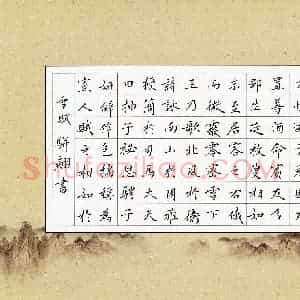 置旨酒命賓友召
鄒生延枚叟相如
末至居客之右俄
而微霰零密雪下
王乃歌北風於衛
詩詠南山於周雅
授簡於司馬大夫
曰抽子秘思騁子
妍辭侔色揣稱為
寡人賦之相如於
雪賦 書
Shufaziliao.com